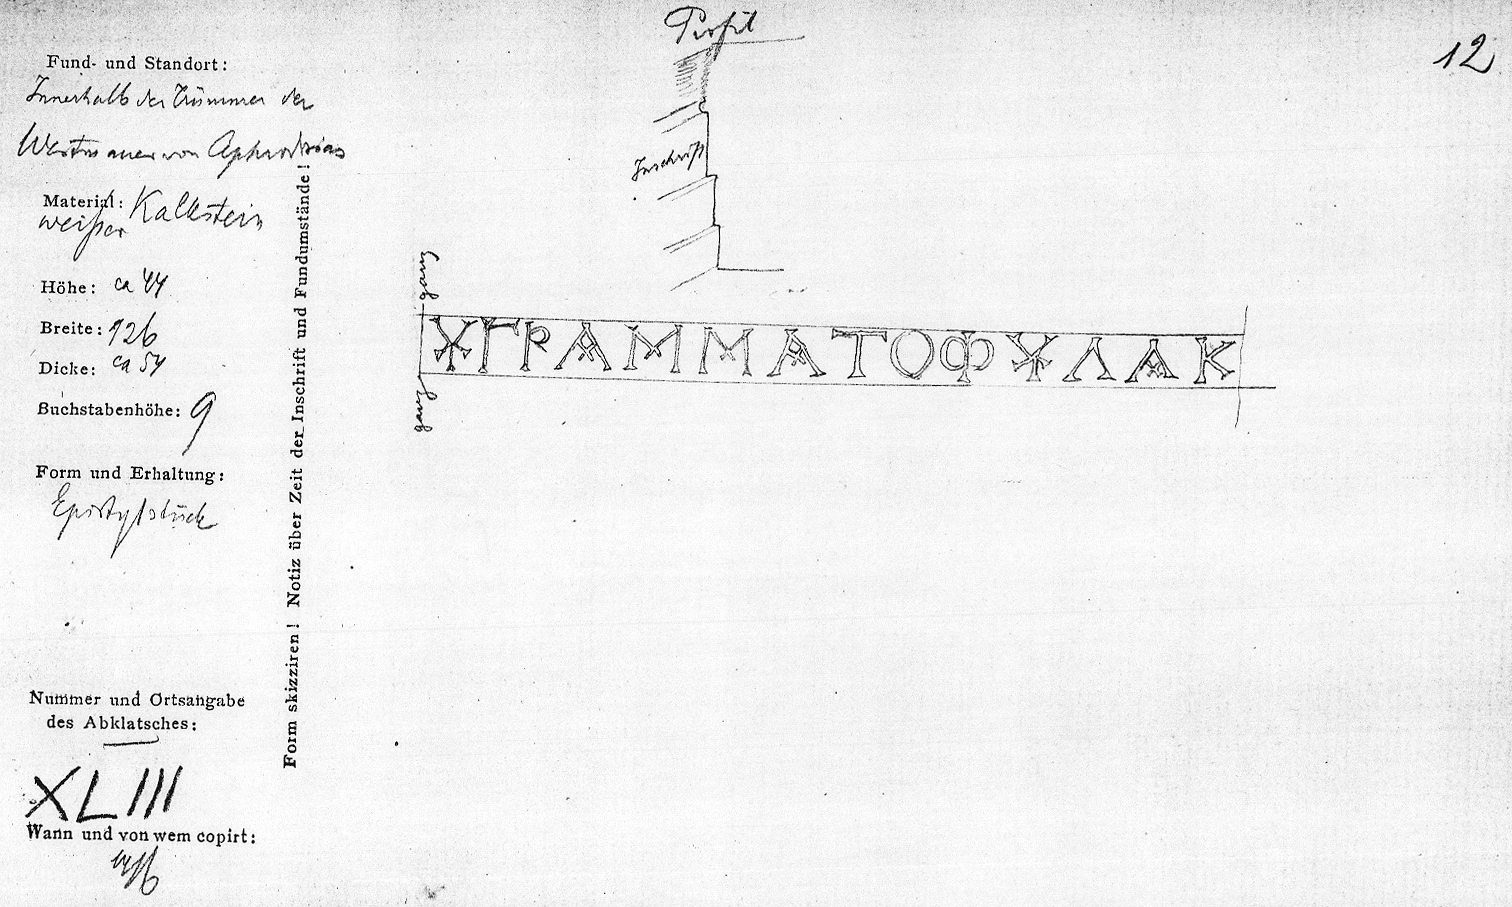 Profil
12
Fund- und Standort:
Innerhalb der Trümmer der
Westmauer von Aphrodisias
Material: Kalkstein
weißer
Höhe: ca 44
Breite: 126
Dicke: ca 54
Buchstabenhöhe: 9
Form und Erhaltung:
Epistylstück
Nummer und Ortsangabe
des Abklatsches:
XLIII
Wann und von wem copirt:
Form skizziren! Notiz über Zeit der Inschrift und Fundumstände!
Inschrift
ganz
ΥΓΡΑΜΜΑΤΟΦΥΛΑΚ
ganz